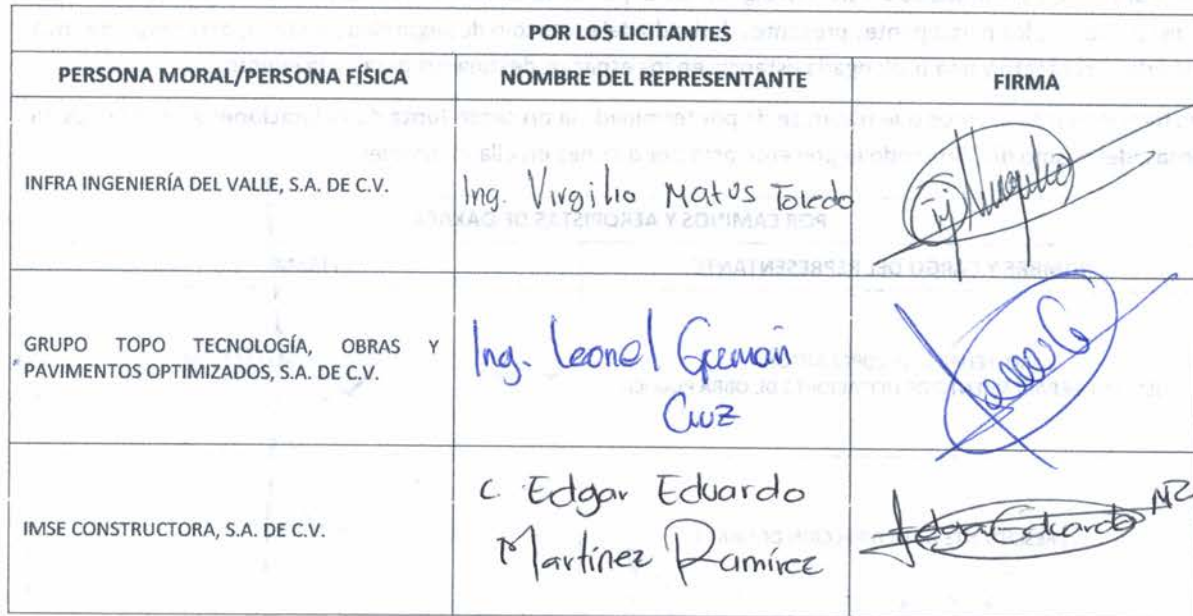 POR LOS LICITANTES
PERSONA MORAL/PERSONA FÍSICA
NOMBRE DEL REPRESENTANTE
FIRMA
INFRA INGENIERÍA DEL VALLE, S.A. DE C.V.
Ing. Virgilio Matus Toledo
GRUPO TOPO TECNOLOGÍA, OBRAS Y
PAVIMENTOS OPTIMIZADOS, S.A. DE C.V.
Ing. Leonel Guzmán
Cruz
IMSE CONSTRUCTORA, S.A. DE C.V.
C. Edgar Eduardo
Martínez Ramírez
Edgar Eduardo MR